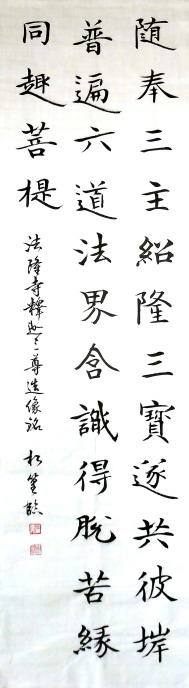 随奉三主紹隆三寶遂共彼堓
普遍六道法界含識得脫苦緣
同趣菩提
法隆寺釋迦三尊造像銘